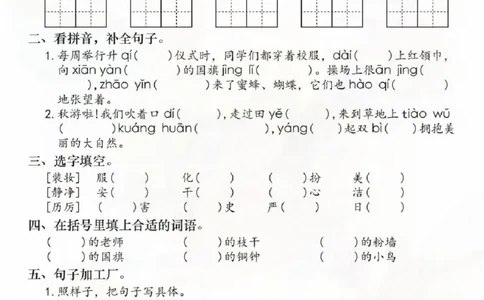 二、看拼音，补全句子。
1. 每周举行升qí(　　)仪式时，同学们都穿着校服，dài(　　)上红领巾，
向xiān yàn(　　)的国旗jìng lǐ(　　)。操场上很ān jìng(　　
),zhāo yǐn(　　)来了蜜蜂、蝴蝶，它们也hào qí(　　)
地张望着。
2. 秋游啦!我们吹着口dí(　　),走过田yě(　　),来到草地上tiào wǔ
(　　)kuáng huān(　　),yáng(　　)起双bì(　　)拥抱美
丽的大自然。
三、选字填空。
[装妆]　服(　　)　化(　　)　(　　)扮　美(　　)
[静净]　安(　　)　干(　　)　(　　)心　洁(　　)
[历厉]　(　　)害　(　　)史　严(　　)　日(　　)
四、在括号里填上合适的词语。
(　　)的老师　(　　)的枝干　(　　)的粉墙
(　　)的国旗　(　　)的铜钟　(　　)的小鸟
五、句子加工厂。
1. 照样子，把句子写具体。